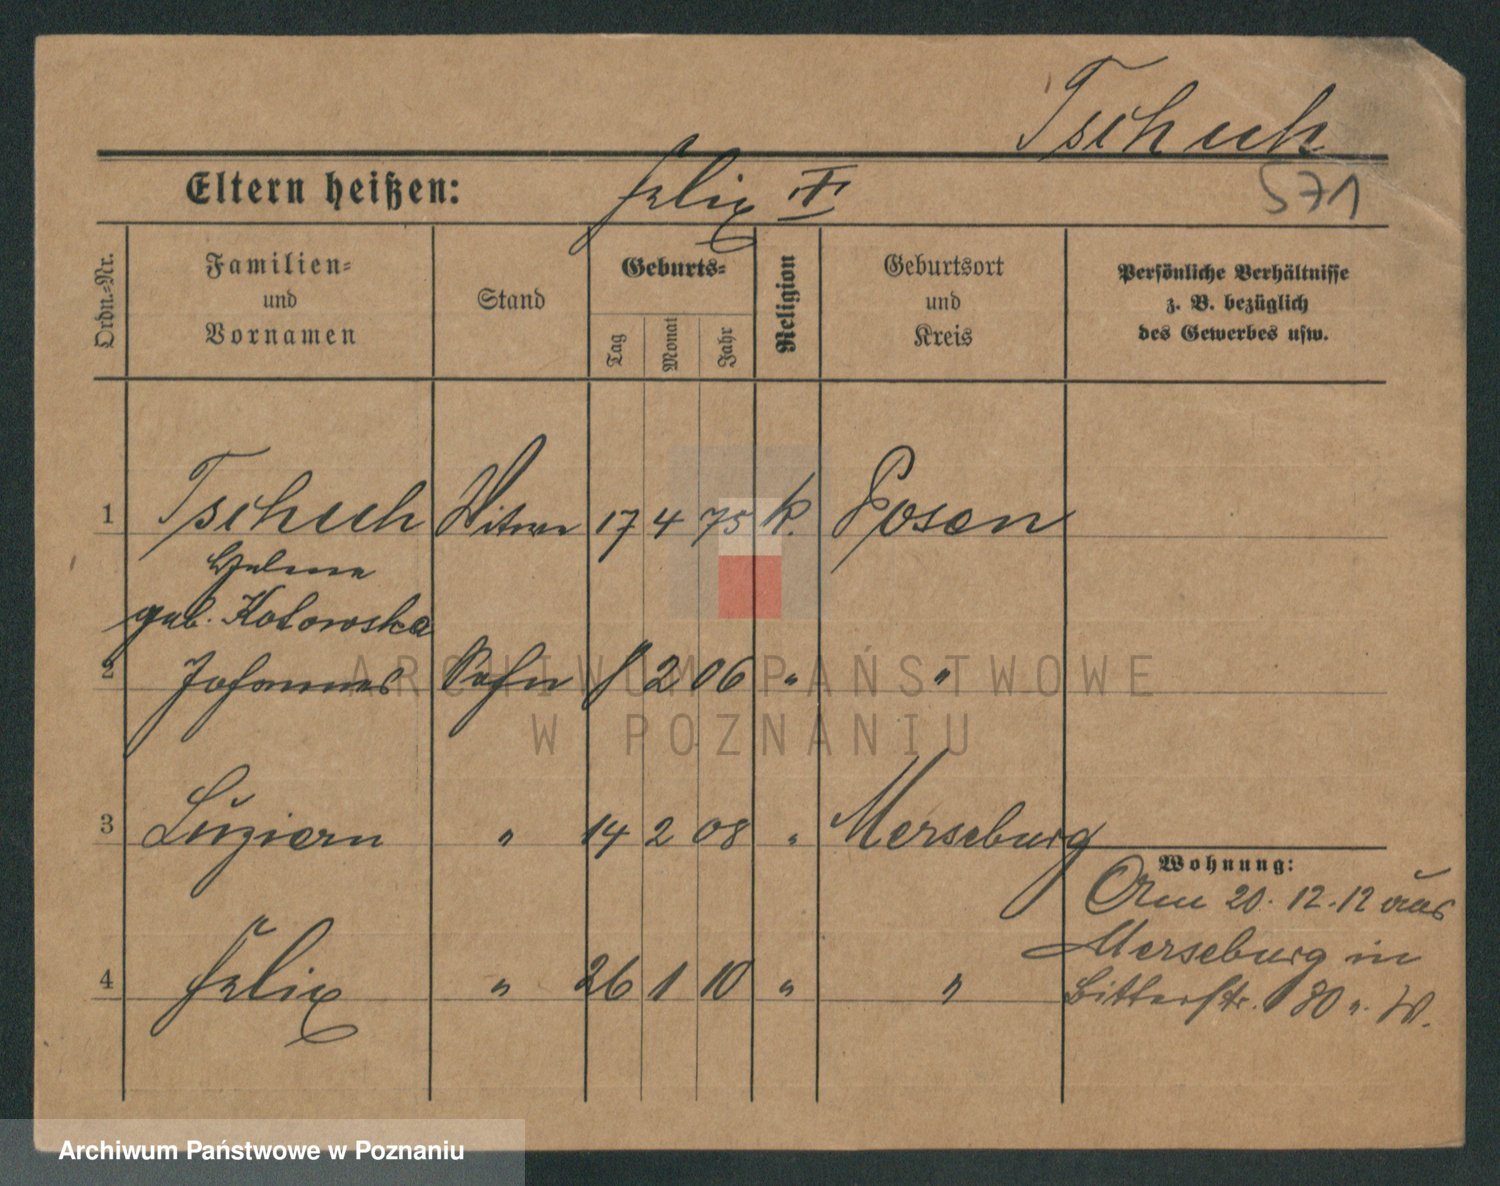 Tschich
571
Eltern heißen: Felix
Ordn.-Nr.
Familien-
und
Vornamen
Stand
Geburts-
Tag
Monat
Jahr
Religion
Geburtsort
und
Kreis
Persönliche Verhältnisse
z. B. bezüglich
des Gewerbes usw.
1 Tschich Witwe 17 4 75 k. Posen
geb. Kotowska
2 Johannes Sohn 8 2 06 " "
3 Luzian " 14 2 08 " Merseburg
4 Felix " 26 1 10 " "
Wohnung:
Am 20. 12. 12 aus
Merseburg in
Bitterstr. 30
ARCHIWUM PAŃSTWOWE
W POZNANIU
Archiwum Państwowe w Poznaniu